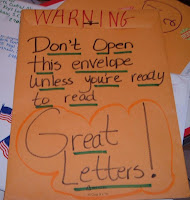 WARNING
Don't Open
this envelope
unless you're ready
to read
Great
Letters!